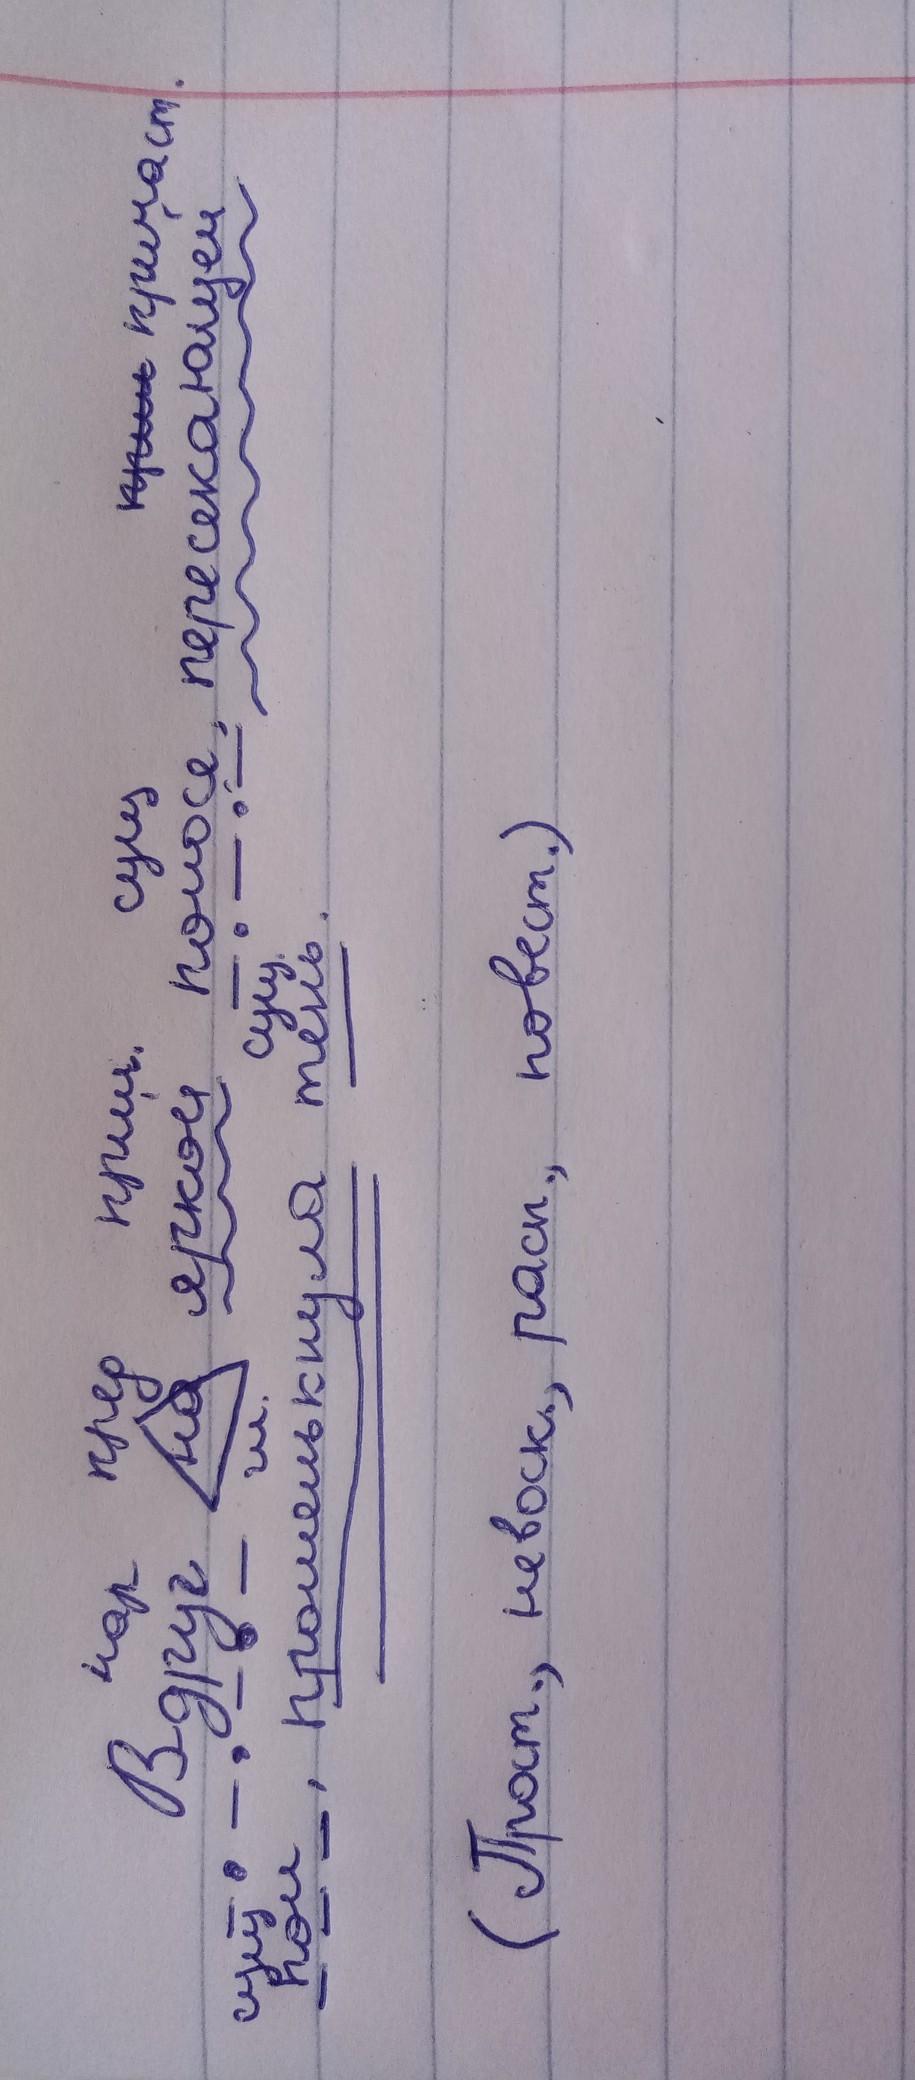 нар пред прил. сущ прич част.
Вдруг на яркой полосе, пересекающей
сущ гл. сущ.
пол, промелькнула тень.
(Прост., невоск., расп., повест.)